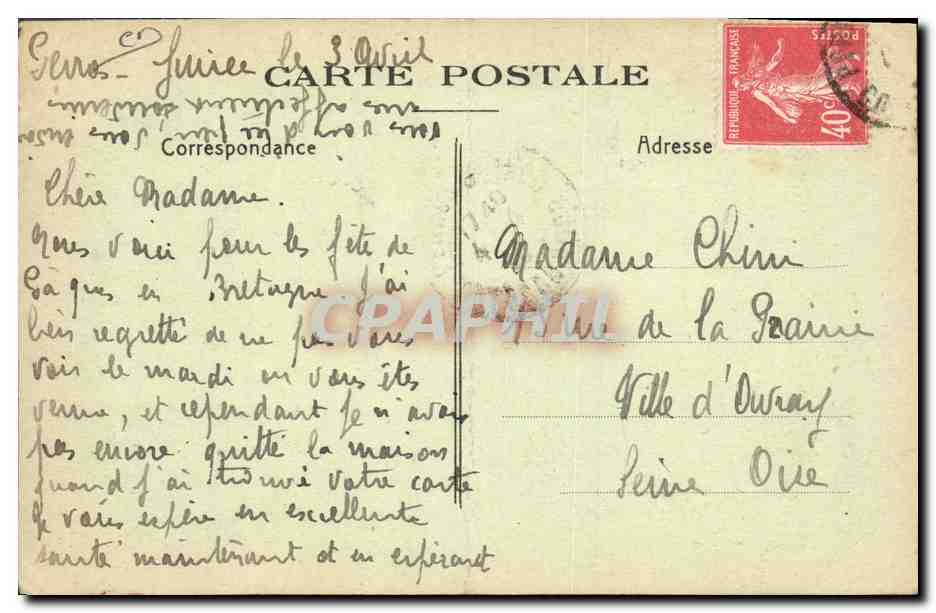 Perros-Guirec le 3 Avril
CARTE POSTALE
Correspondance
Adresse
Chère Madame.
Nous voici pour les fête de
Pâques en Bretagne j'ai
bien regretté de ne pas vous
voir le mardi ou vous êtes
venue, et cependant je n'avais
pas encore quitté la maison
quand j'ai trouvé votre carte
Je vous espère en excellente
santé maintenant et en espérant
vous voir
affectueux
Madame Chini
Rue de la Prairie
Ville d'Avray
Seine Oise
REPUBLIQUE FRANÇAISE
POSTES
40c
17 40
CPAPHIL